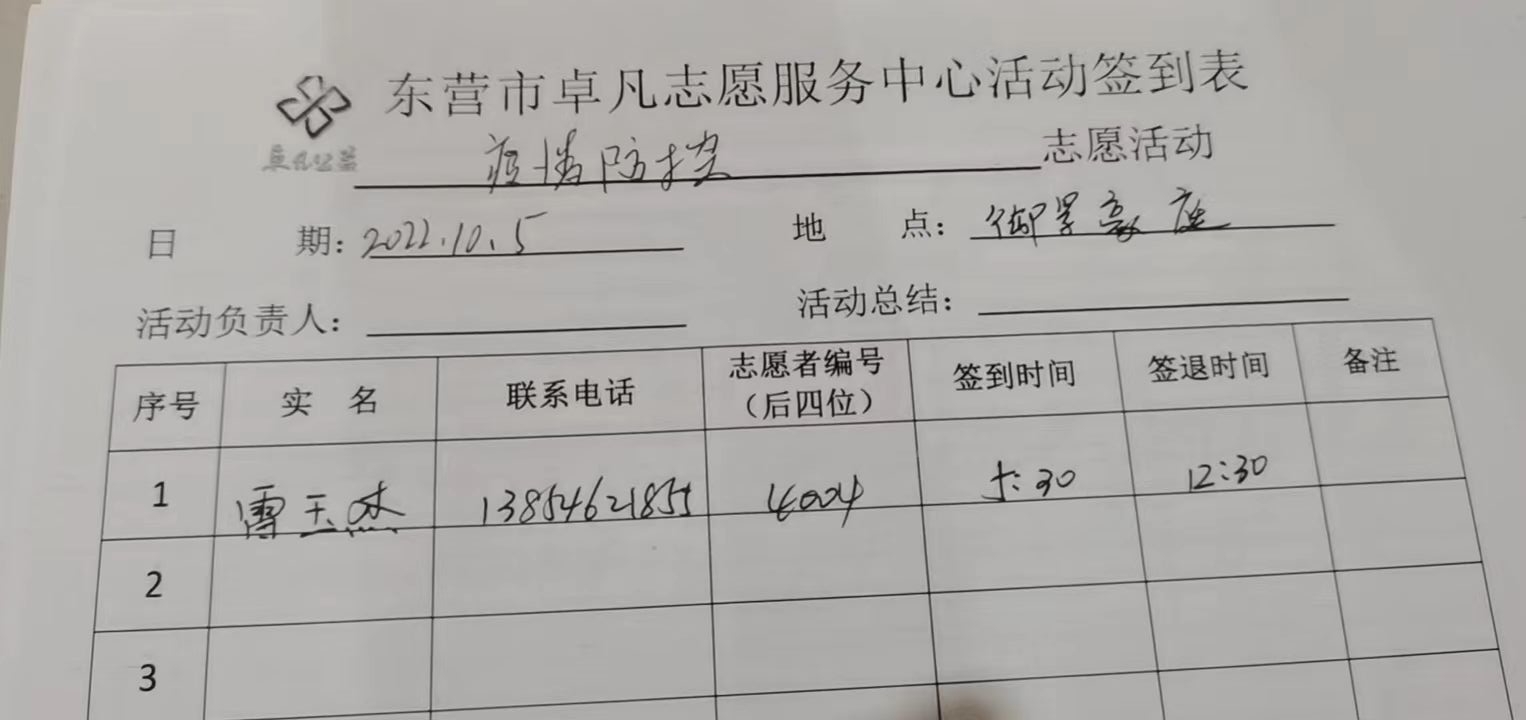 东营市卓凡志愿服务中心活动签到表
卓凡公益
疫情防控 志愿活动
日 期：2022.10.5 地 点：御景豪庭
活动负责人： 活动总结：
序号 实 名 联系电话 志愿者编号（后四位） 签到时间 签退时间 备注
1 雷玉杰 13854621855 4004 5:30 12:30
2
3